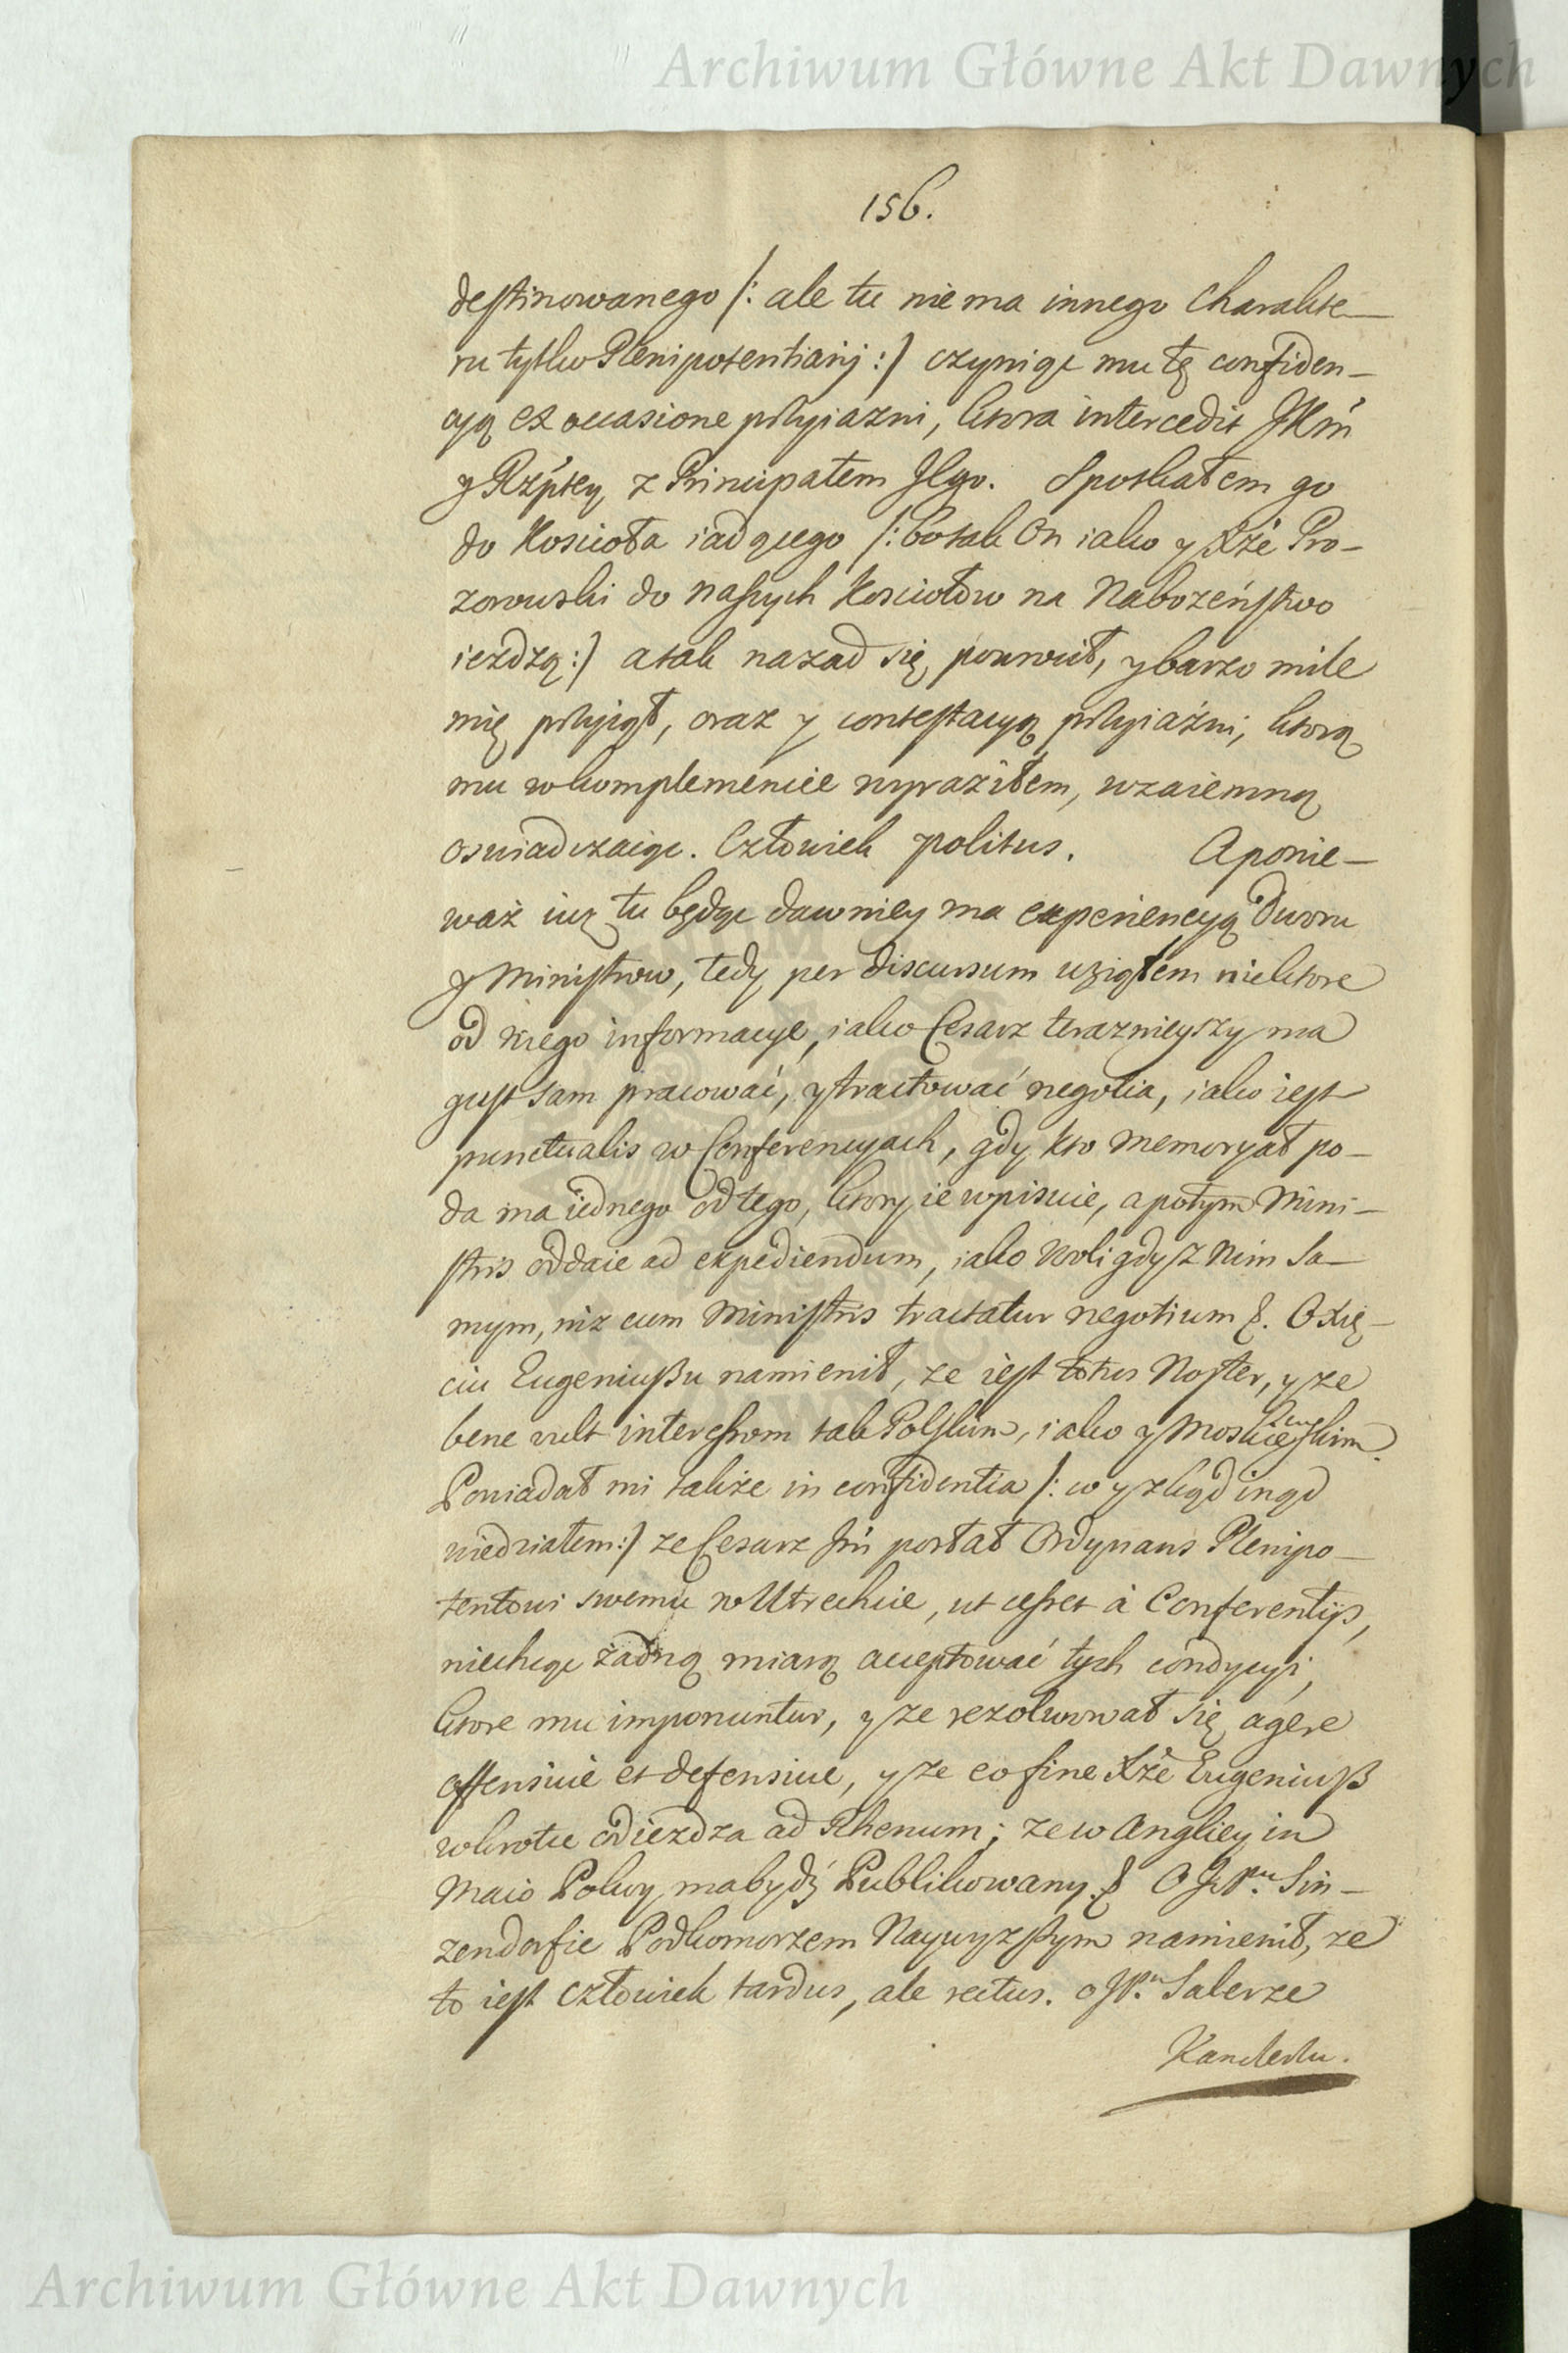 Archiwum Główne Akt Dawnych
156.
destinowanego /: ale tu nie ma innego Charakte-
ru tylko Plenipotentiarij :/ czyniąc mu tę confiden-
cyą ex occasione przyiazni, ktora intercedit JKM
y Rzptey z Principałem Jego. Spotkałem go
do Kościoła iadącego /: bo tak On iako y Xże Pro-
zorowski do naszych Kosciołow na Nabożeństwo
ieżdżą :/ a tak nazad się powrócił, y barzo mile
mię przyiął, oraz y contestacyą przyiaźni, ktorą
mu w komplemencie wyraziłem, wzaiemną
oswiadczaiąc. Człowiek politus. A ponie-
waż iuz tu będąc dawniey ma experiencyą Dworu
y Ministrow, tedy per discursum wziąłem niektore
od niego informacye, iako Cesarz teraznieyszy ma
gust sam pracować, y tractować negotia, iako iest
punctualis w Conferencyach, gdy kto memoryał po-
da ma iednego od tego, ktory ie wpisuie, a potym Mini-
stris oddaie ad expediendum, iako woli gdy z Nim sa-
mym, niz cum Ministris tractatur negotium &. O Xię-
ciu Eugeniuszu namienił, ze iest totus Noster, y ze
bene vult interessom tak Polskim, iako y Moskiewskim.
Powiadał mi także in confidentia /: co y zkąd inąd
wiedziałem :/ ze Cesarz Jm posłał Ordynans Plenipo-
tentowi swemu w Utrechcie, ut cesset à Conferentijs,
niechcąc żadną miarą acceptować tych condycyi,
ktore mu imponuntur, y ze rezolwował się agere
offensive et defensive, y ze eo fine Xże Eugeniusz
wkrotce odiezdza ad Rhenum; ze w Angliey in
Maio Pokoy ma bydź Publikowany. & O JP. Sin-
zendorfie Podkomorzem Naywyzszym namienił, ze
to iest człowiek tardus, ale rectus. o JP. Salerze
Kanclerzu.
Archiwum Główne Akt Dawnych